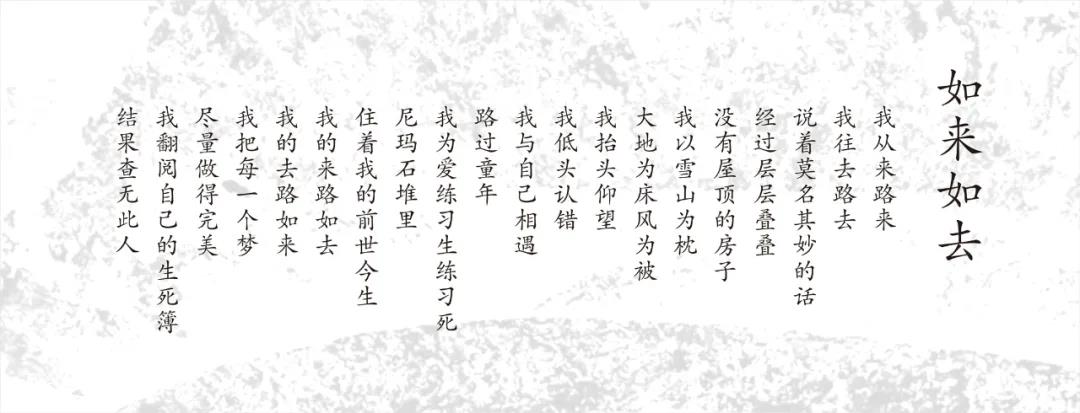 如来如去
我从来路来
我往去路去
说着莫名其妙的话
经过层层叠叠
没有屋顶的房子
我以雪山为枕
大地为床风为被
我抬头仰望
我低头认错
我与自己相遇
路过童年
我为爱练习生练习死
尼玛石堆里
住着我的前世今生
我的来路如去
我的去路如来
我把每一个梦
尽量做得完美
我翻阅自己的生死簿
结果查无此人